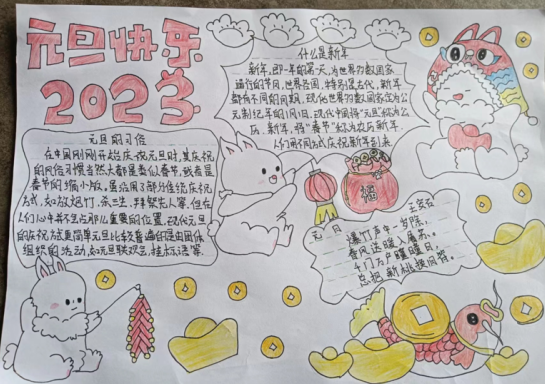 元旦快乐
2023
什么是新年
新年,即一年的第一天,为世界多数国家
通行的节日,世界各国,特别是古代,新年
都有不同的日期,现代世界多数国家定为公
元制纪年的1月1日。现代中国将"元旦"称为公
历新年,将"春节"称为农历新年。
人们用不同方式庆祝新年到来
元旦的习俗
在中国刚刚开始庆祝元旦时,其庆祝
的风俗习惯当然大都是类似春节,或者是
春节的缩小版。
式,如放炮竹、杀三生、拜祭先人等。但在
人们心中并不占那么重要的位置。现代元旦
的庆祝方式更简单元旦比较普遍的是由团体
组织的活动,如元旦联欢会,挂标语等。
福
元日
王安石
爆竹声中一岁除,
春风送暖入屠苏。
千门万户曈曈日,
总把新桃换旧符。